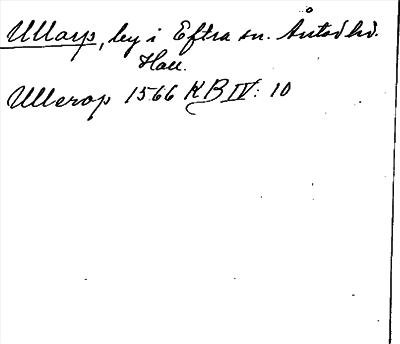 Ullarp, by i Eftra sn. Årstad hd.
Hall.
Ullerop 1566 KB IV: 10